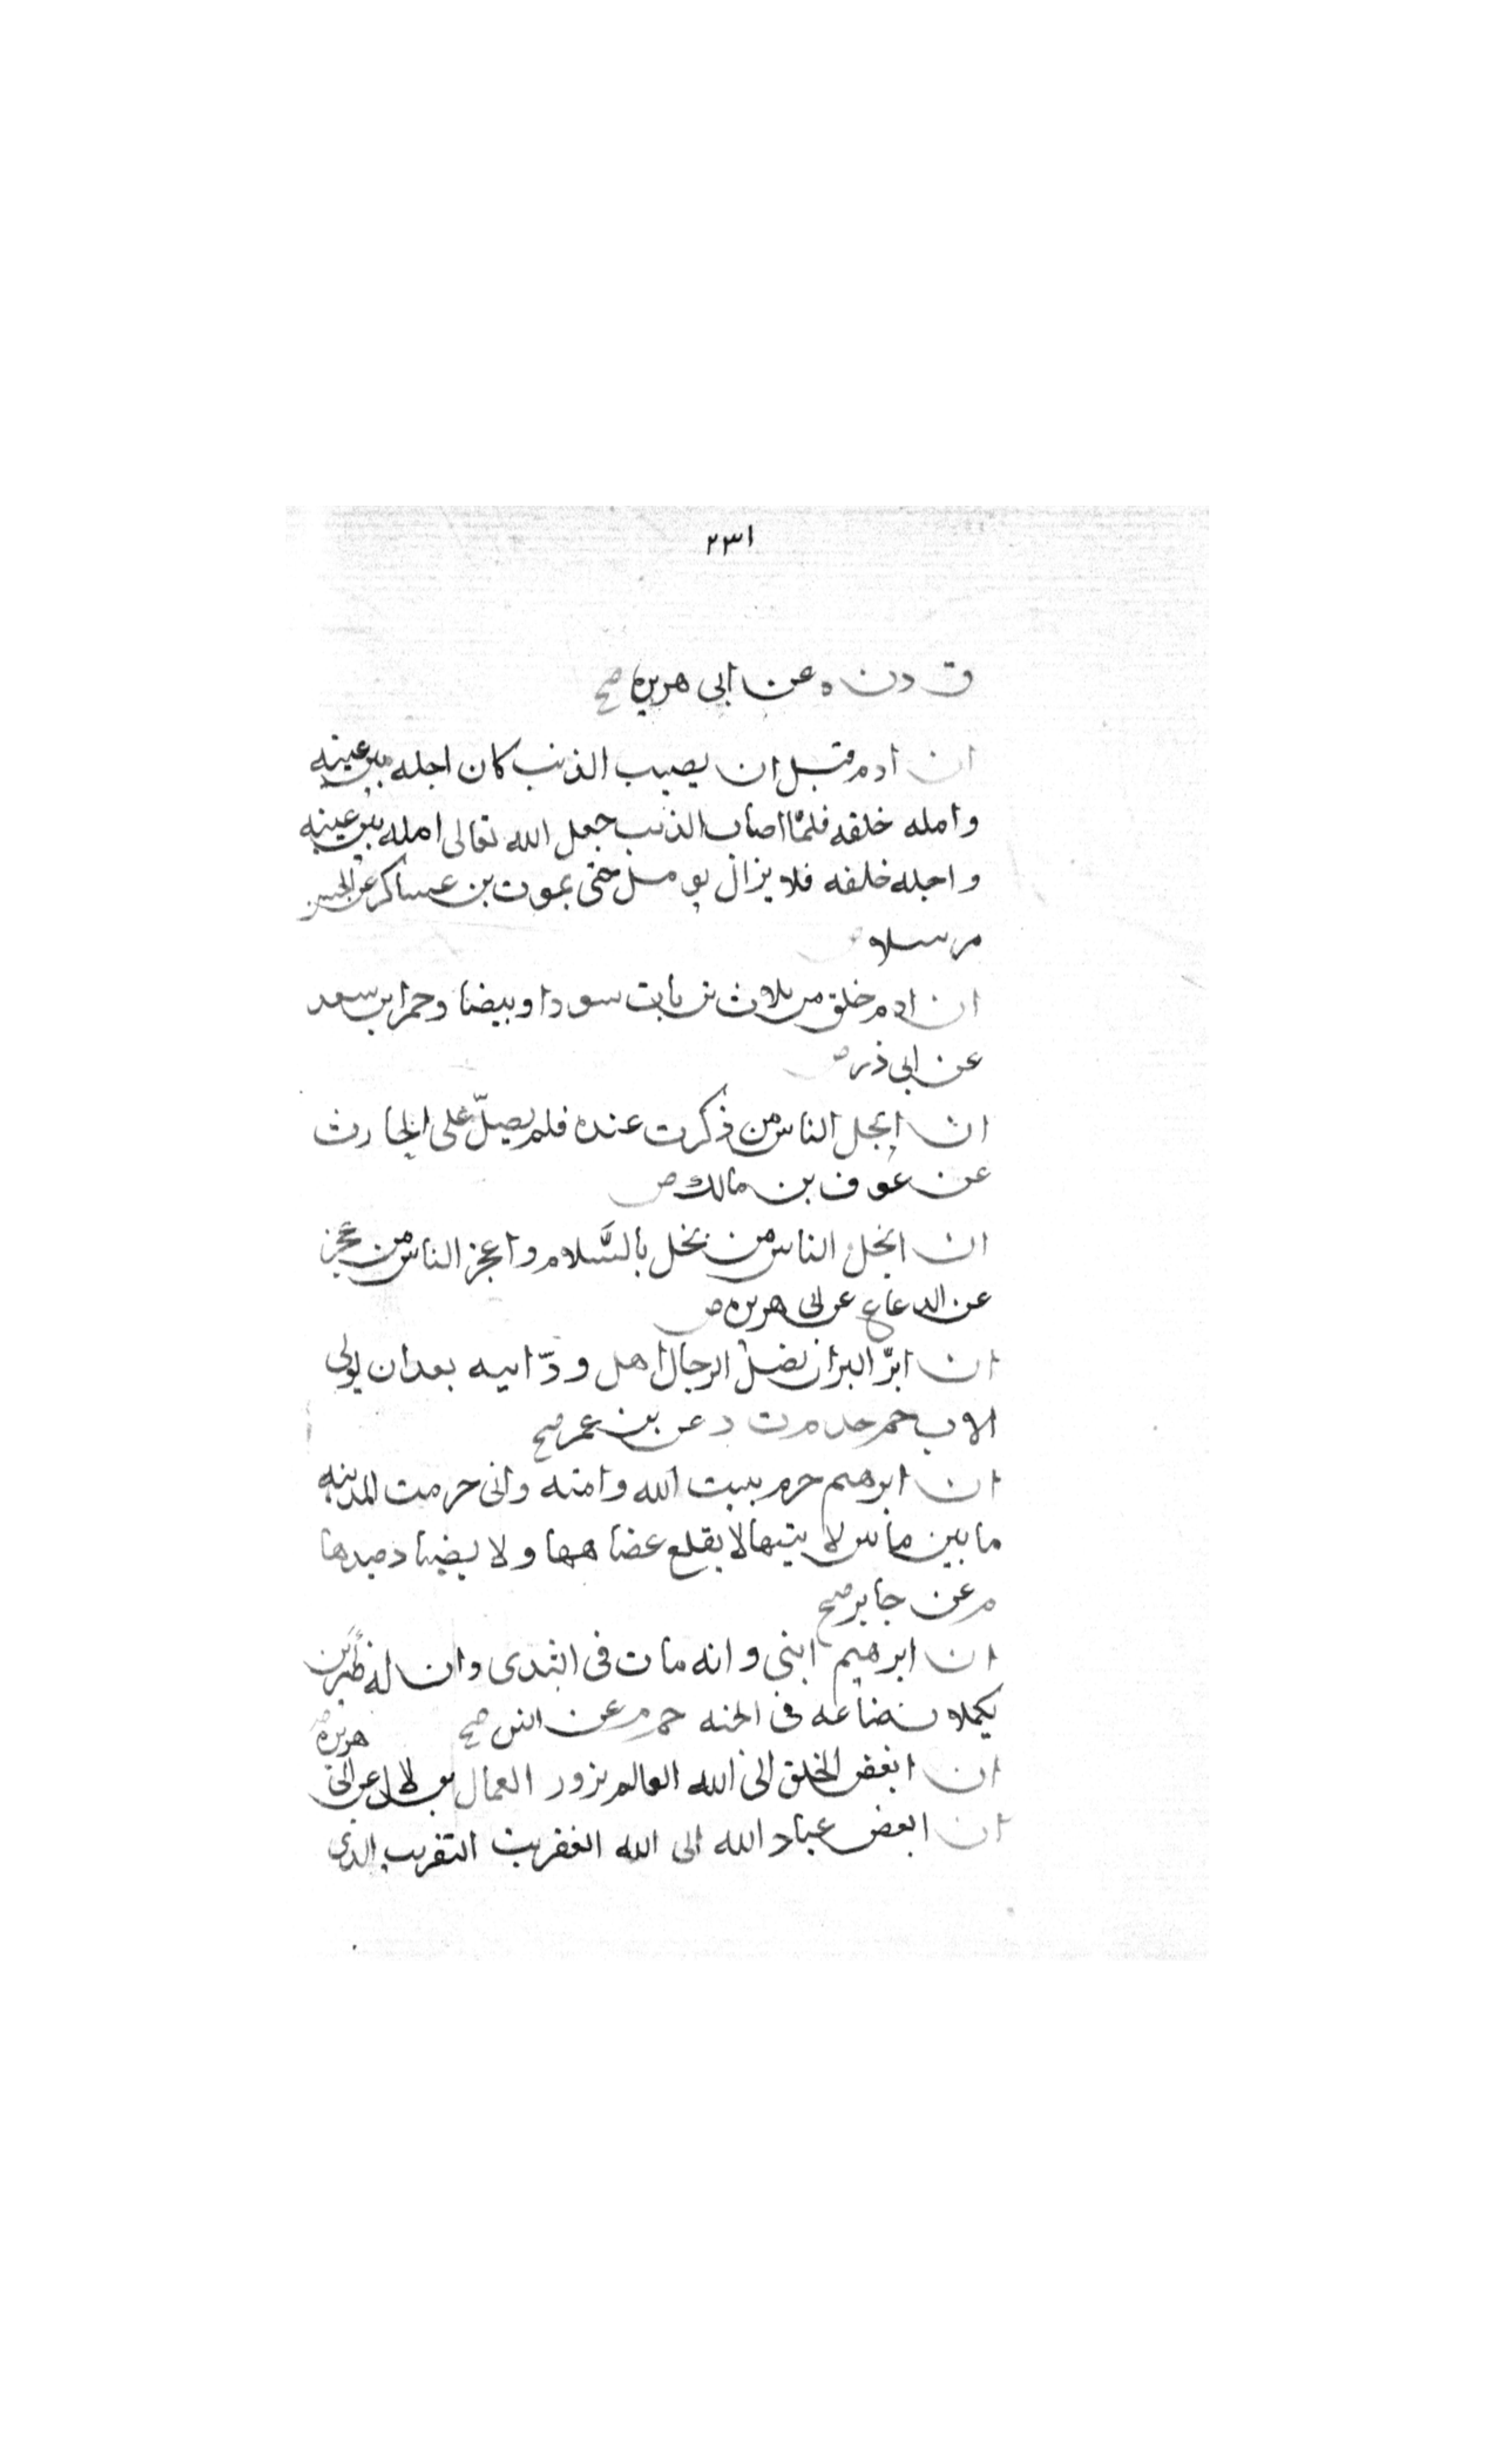 ٢٣١
ق د ن ه عن ابى هريرة صح
ان ادم قبل ان يصيب الذنب كان اجله بين عينيه
وامله خلفه فلمّا اصاب الذنب جعل الله تعالى امله بين عينيه
واجله خلفه فلا يزال يومل حتى يموت بن عساكر عن الحسن
مرسلا
ان ادم خلق من ثلاث تربات سودا وبيضا وحمرا بن سعد
عن ابى ذر ض
ان ابخل الناس من ذكرت عنده فلم يصلّ على الحارث
عن عوف بن مالك ض
ان ابخل الناس من بخل بالسَّلام واعجز الناس من عجز
عن الدعا ع عن ابى هريره ض
ان ابرّ البر ان يصل الرجل اهل ودّ ابيه بعد ان يولى
الاب حم خد م ت د عن بن عمر صح
ان ابرهيم حرم بيت الله وامنه وانى حرمت المدينه
ما بين لا بتيها لا يقلع عضاهها ولا يصاد صيدها
م عن جابر صح
ان ابرهيم ابنى وانه مات فى الثدى وان له ظئرين
يكملان رضاعه فى الجنه حم م عن انس صح
ان ابغض الخلق الى الله العالم يزور العمال بن لال عن ابى هريرة
ان ابغض عباد الله الى الله العفريت النفريت الذى